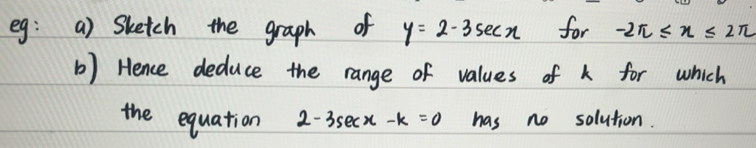 eg: a) Sketch the graph of y = 2 - 3 sec x for -2π ≤ x ≤ 2π
b) Hence deduce the range of values of k for which
the equation 2 - 3 sec x - k = 0 has no solution.